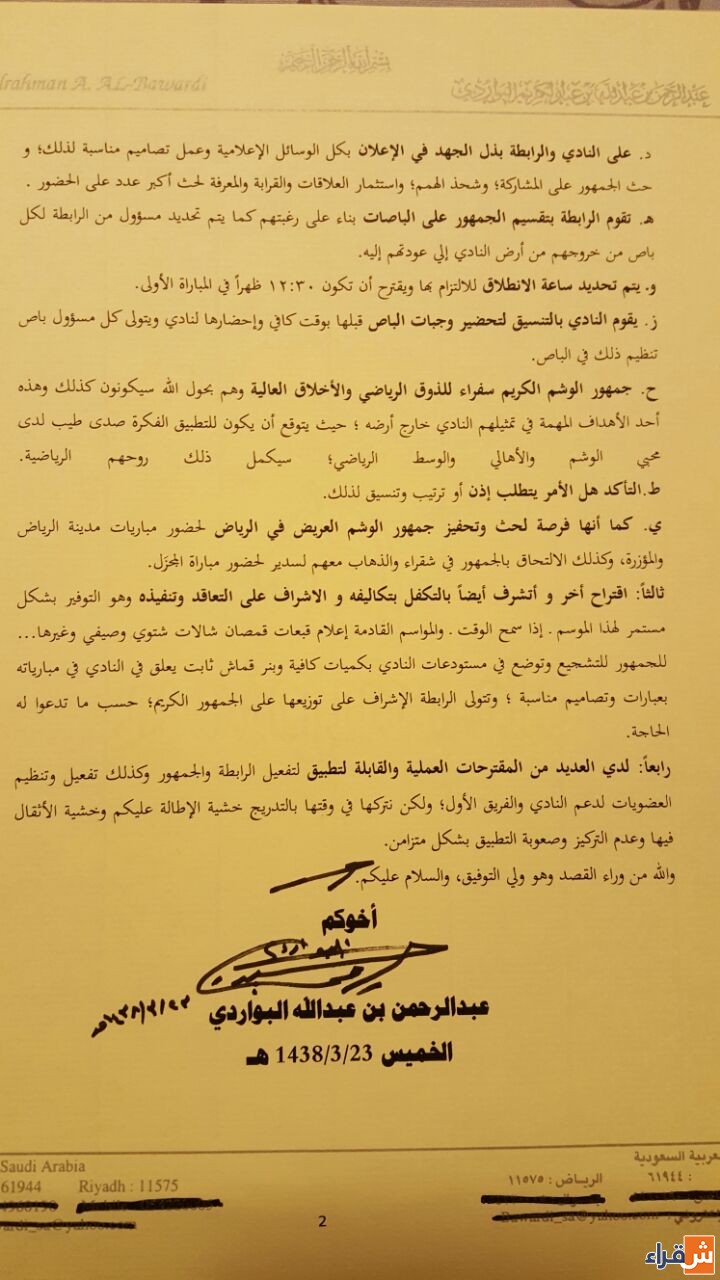 بسم الله الرحمن الرحيم
lrahman A. AL-Bawardi
عبد الرحمن بن عبد الله بن عبد الكريم البواردي
د. على النادي والرابطة بذل الجهد في الإعلان بكل الوسائل الإعلامية وعمل تصاميم مناسبة لذلك؛ و
حث الجمهور على المشاركة؛ وشحذ الهمم؛ واستثمار العلاقات والقرابة والمعرفة لحث أكبر عدد على الحضور .
هـ. تقوم الرابطة بتقسيم الجمهور على الباصات بناء على رغبتهم كما يتم تحديد مسؤول من الرابطة لكل
باص من خروجهم من أرض النادي إلي عودتهم إليه.
و. يتم تحديد ساعة الانطلاق للالتزام بها ويقترح أن تكون ١٢:٣٠ ظهراً في المباراة الأولى.
ز. يقوم النادي بالتنسيق لتحضير وجبات الباص قبلها بوقت كافي وإحضارها لنادي ويتولى كل مسؤول باص
تنظيم ذلك في الباص.
ح. جمهور الوشم الكريم سفراء للذوق الرياضي والأخلاق العالية وهم بحول الله سيكونون كذلك وهذه
أحد الأهداف المهمة في تمثيلهم النادي خارج أرضه ؛ حيث يتوقع أن يكون للتطبيق الفكرة صدى طيب لدى
محبي الوشم والأهالي والوسط الرياضي؛ سيكمل ذلك روحهم الرياضية.
ط.التأكد هل الأمر يتطلب إذن أو ترتيب وتنسيق لذلك.
ي. كما أنها فرصة لحث وتحفيز جمهور الوشم العريض في الرياض لحضور مباريات مدينة الرياض
والمؤزرة، وكذلك الالتحاق بالجمهور في شقراء والذهاب معهم لسدير لحضور مباراة المجزَل.
ثالثاً: اقتراح أخر و أتشرف أيضاً بالتكفل بتكاليفه و الاشراف على التعاقد وتنفيذه وهو التوفير بشكل
مستمر لهذا الموسم . إذا سمح الوقت . والمواسم القادمة إعلام قبعات قمصان شالات شتوي وصيفي وغيرها...
للجمهور للتشجيع وتوضع في مستودعات النادي بكميات كافية وبنر قماش ثابت يعلق في النادي في مبارياته
بعبارات وتصاميم مناسبة ؛ وتتولى الرابطة الإشراف على توزيعها على الجمهور الكريم؛ حسب ما تدعوا له
الحاجة.
رابعاً: لدي العديد من المقترحات العملية والقابلة لتطبيق لتفعيل الرابطة والجمهور وكذلك تفعيل وتنظيم
العضويات لدعم النادي والفريق الأول؛ ولكن نتركها في وقتها بالتدريج خشية الإطالة عليكم وخشية الأثقال
فيها وعدم التركيز وصعوبة التطبيق بشكل متزامن.
والله من وراء القصد وهو ولي التوفيق، والسلام عليكم.
أخوكم
عبدالرحمن بن عبدالله البواردي
١٤٣٨/٣/٢٣هـ
الخميس 1438/3/23 هـ
Saudi Arabia
61944 Riyadh : 11575
لعربية السعودية
الرياض : ١١٥٧٥ : ٦١٩٤٤
2
شقراء